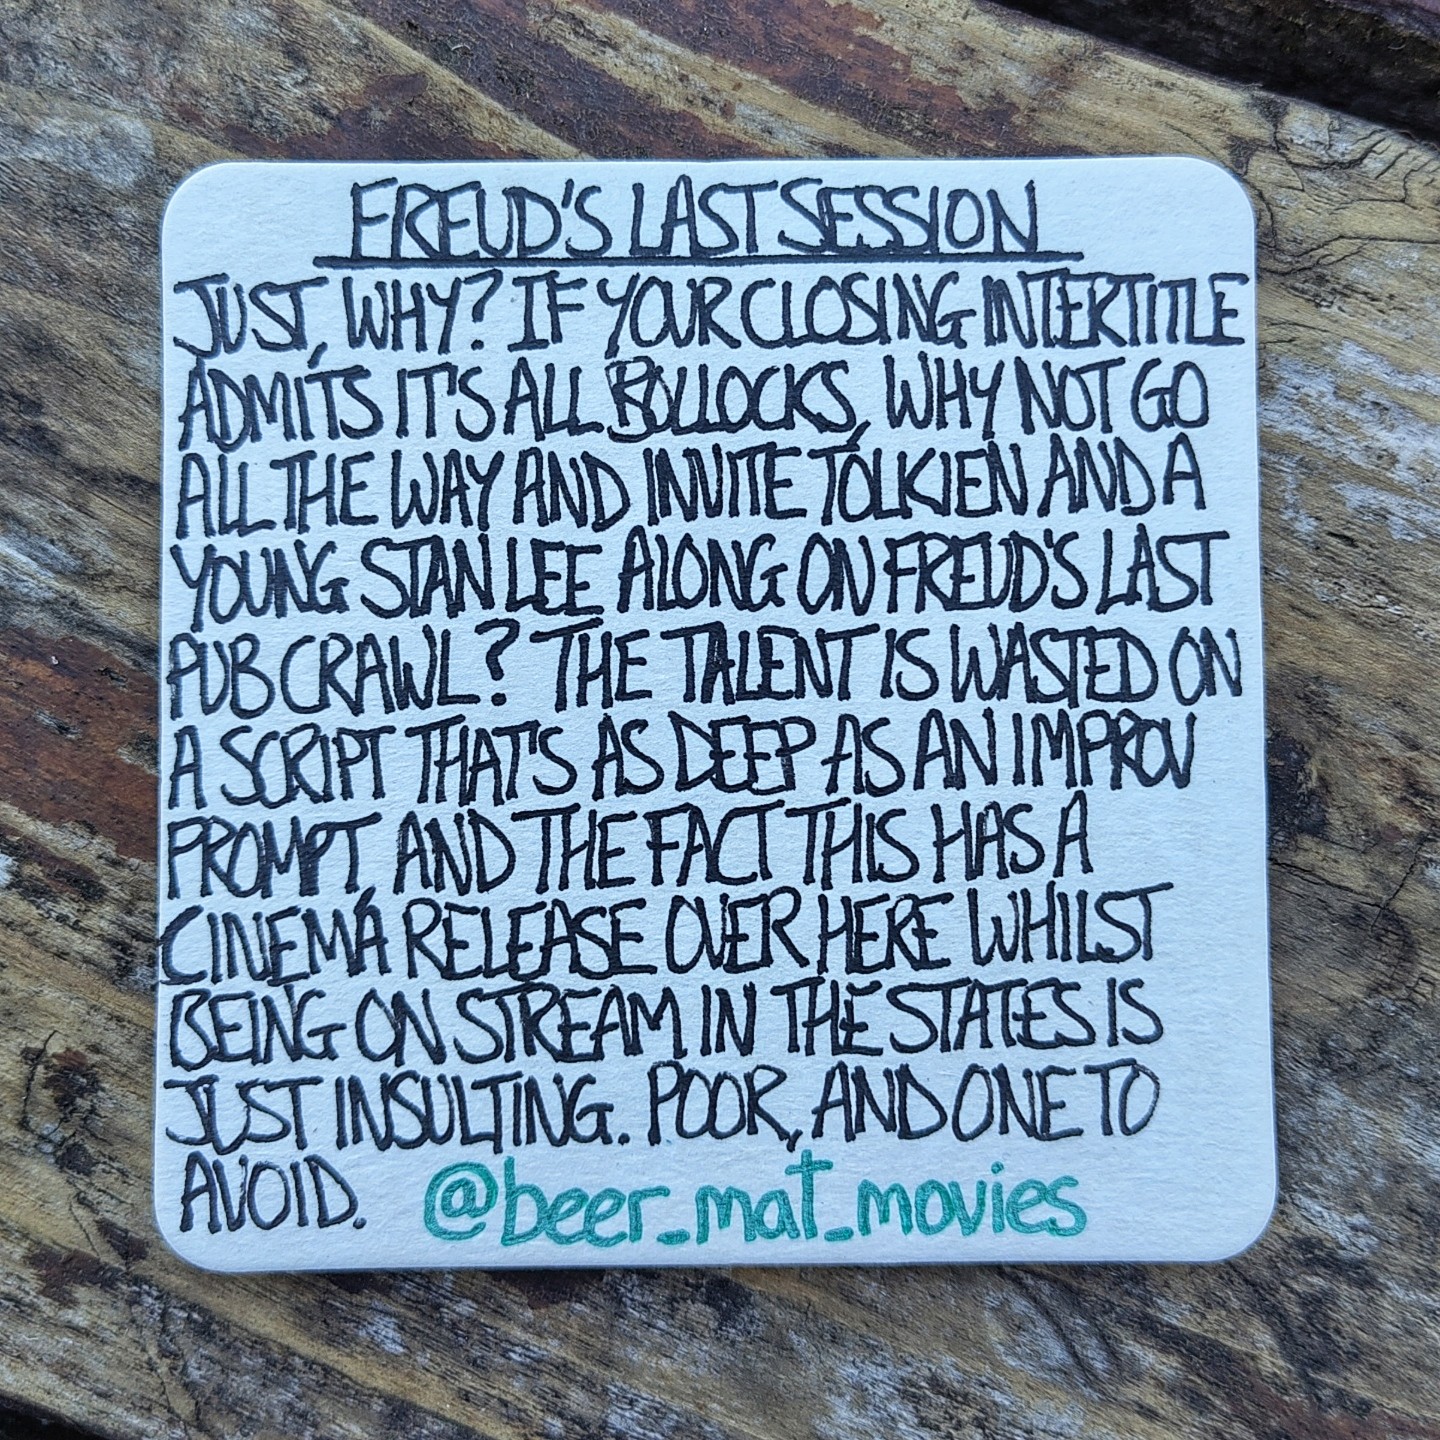 FREUD'S LAST SESSION
JUST, WHY? IF YOUR CLOSING INTERTITLE
ADMITS IT'S ALL BOLLOCKS, WHY NOT GO
ALL THE WAY AND INVITE TOLKIEN AND A
YOUNG STAN LEE ALONG ON FREUD'S LAST
PUB CRAWL? THE TALENT IS WASTED ON
A SCRIPT THAT'S AS DEEP AS AN IMPROV
PROMPT, AND THE FACT THIS HAS A
CINEMA RELEASE OVER HERE WHILST
BEING ON STREAM IN THE STATES IS
JUST INSULTING. POOR, AND ONE TO
AVOID. @beer_mat_movies